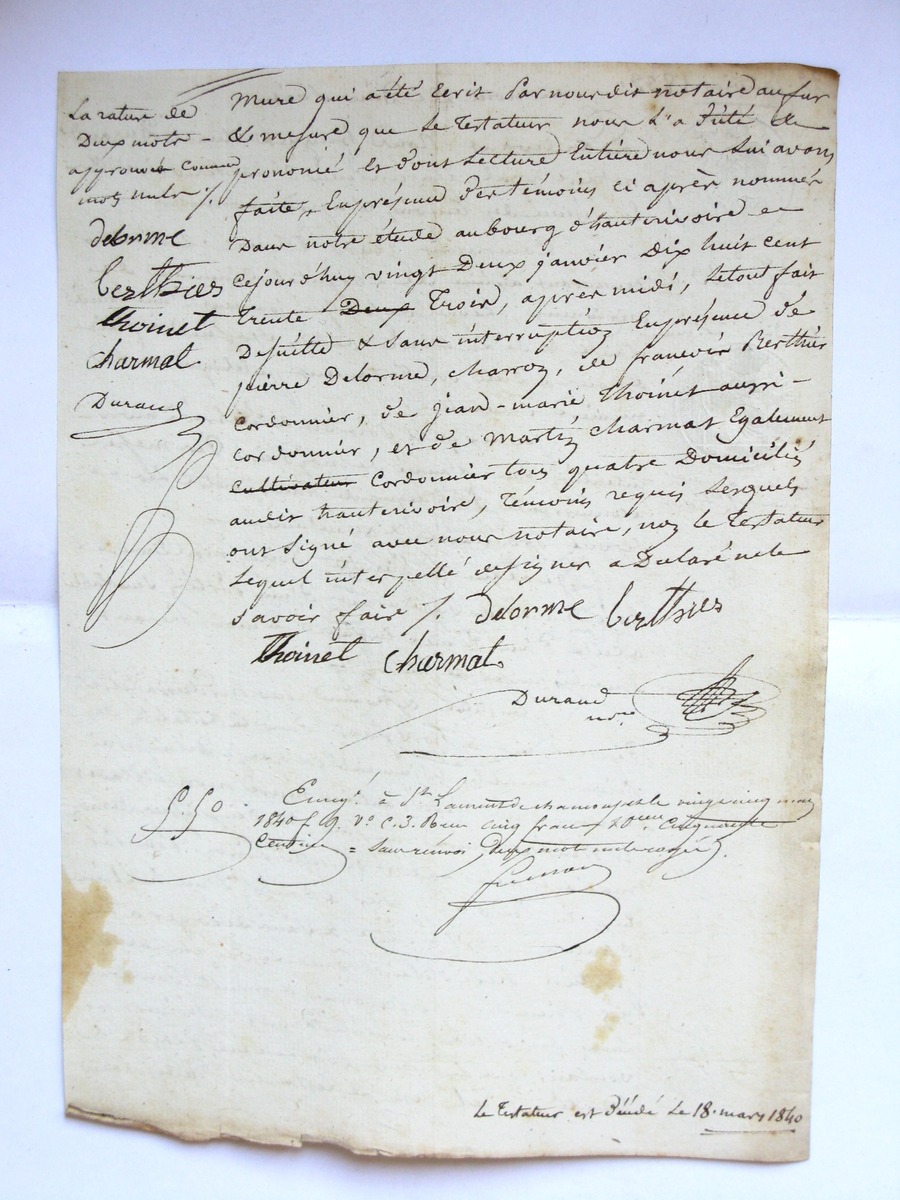 La rature de
Deux mots -
approuvée comme
mots nuls ./.
delorme
berthier
thoinet
charmat
Durand
mure qui a été Ecrit Par nous dit notaire au fur
& mesure que Le Testateur nous L'a dicté &
prononcé Et dont Lecture Entière nous Lui avons
faite, En présence des témoins ci après nommés
Dans notre étude au bourg d'hauterivoire ce
Cejourd'huy vingt Deux janvier Dix huit cent
trente Deux Trois, après midi, Le tout fait
De suitte & sans interruption En présence de
pierre Delorme, charron, de francois Berthier
cordonnier, de jean-marie thoinet aussi -
cordonnier, et de Martin charmat Egalement
Cultivateur Cordonnier tous quatre Domiciliés
audit hauterivoire, témoins requis Lesquels
ont Signé avec nous notaire, non le Testateur
Lequel interpellé de signer a Déclaré ne le
Savoir faire ./. delorme berthier
thoinet charmat
Durand
nre
5.50
Enregt. à St Laurent de chamousset le vingt cinq mai
1840 f. 19. vo c. 3. Reçu cinq francs 10eme Cinquante
Centimes = Sans renvoi, Deux mots nuls rayés
Le Testateur est Décédé Le 18 mars 1840